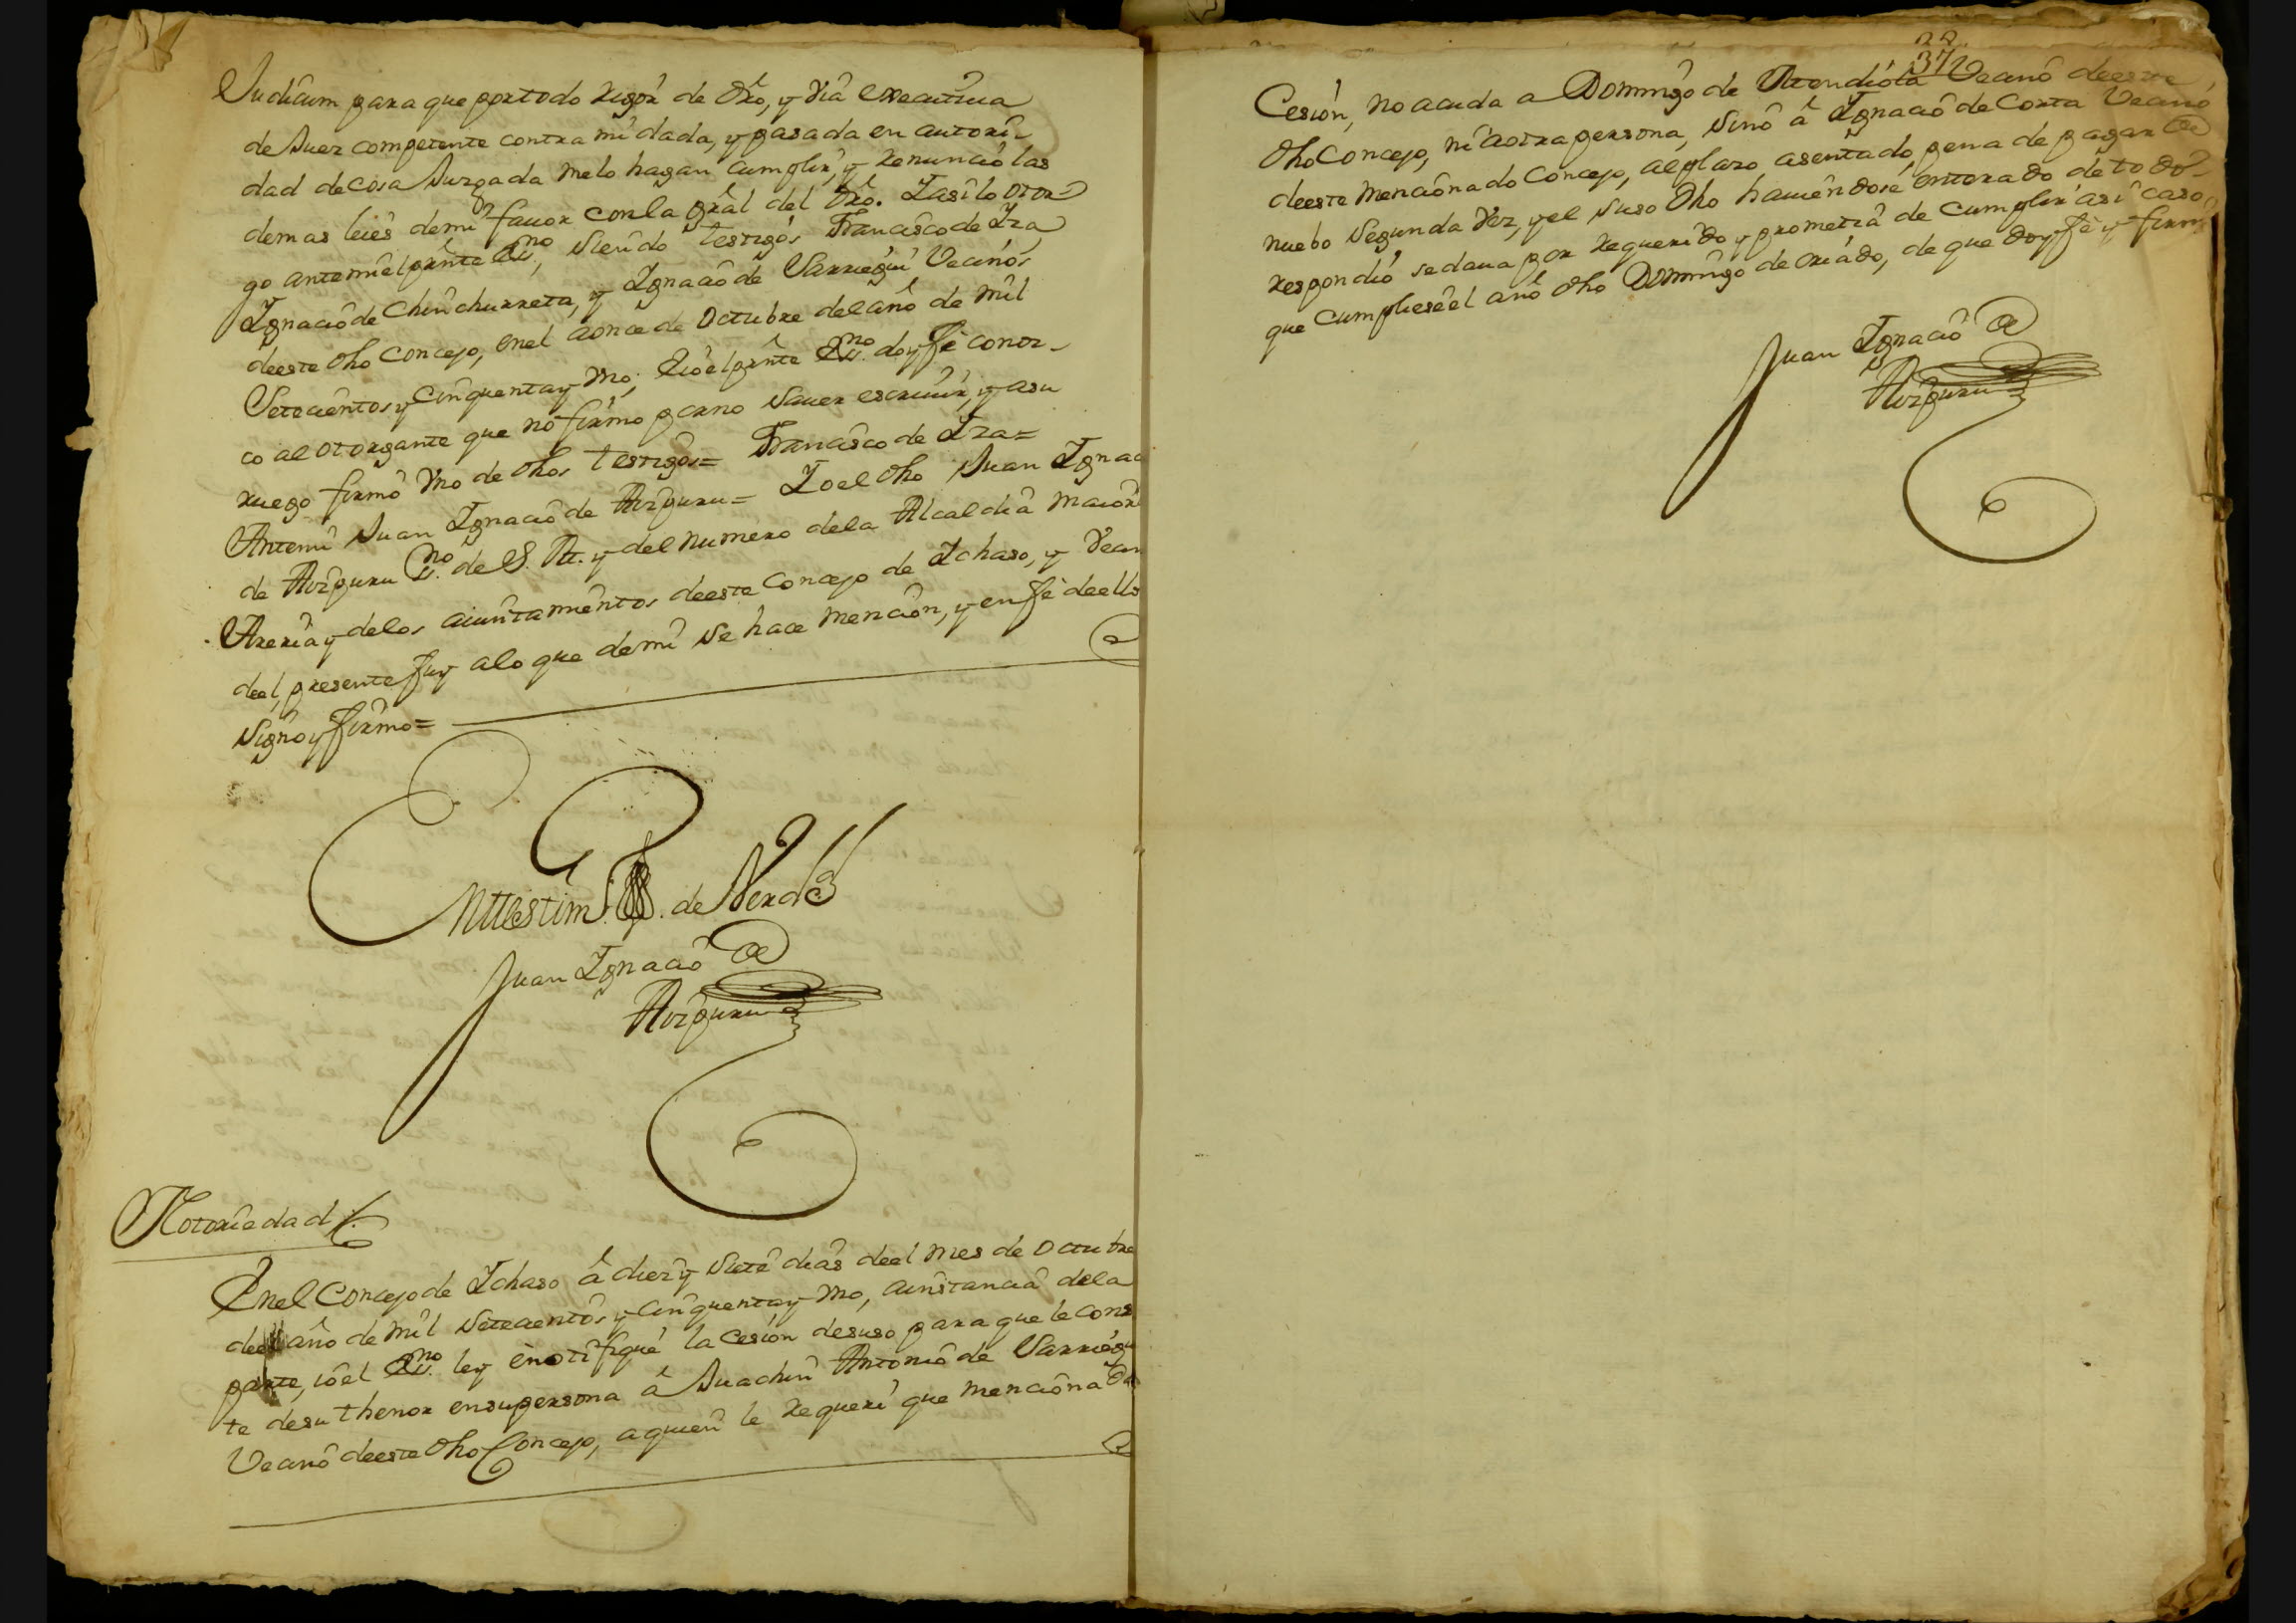 Judicium para que por todo rigor de dro, y via executiva
de Juez competente contra mi dada, y pasada en autori-
dad de cosa Juzgada me lo hagan cumplir, y renunció las
demas leies de mi favor con la gral del dro. I asi lo otor-
go ante mi el prnte Esno, siendo testigos Francisco de Iza
Ignacio de Chinchurreta, y Ignacio de Varriegui Vecinos
de este dho Concejo, en el a once de Octubre del año de mil
Setecientos y Cinquenta y Uno; E io el prnte Esno. doy fe conoz-
co al otorgante que no firmo por no saver escrivir, y a su
ruego firmó Uno de dhos testigos = Francisco de Iza =
Antemi Juan Ignacio de Aizpuru = Io el dho Juan Ignac
de Aizpuru Esno. de S. M. y del numero de la Alcaldia maior
Areria y de los aiuntamientos de este Concejo de Ichaso, y Vecin
de el, presente fuy a lo que de mi se hace mencion, y en fe de ello
Signo y firmo =
En ttestim. de Verdd
Juan Ignacio de
Aizpuru
Notoriedad
En el Concejo de Ichaso â diez y siete dias de el mes de Octubre
de el año de mil setecientos y cinquenta y Uno, a instancia de la
parte, io el Esno. ley è notifiqué la Cesion desuso para que le cons
te de su thenor en su persona â Juachin Antonio de Varriegu
Vecino de este dho Concejo, a quien le requeri que mencionada
37
Cesion, no acuda a Domingo de Mendiola Vecino de este
dho Concejo, ni a otra persona, sinó â Ignacio de Corta Vecino
de este mencionado Concejo, al plazo asentado, pena de pagar de
nuebo segunda vez, y el suso dho haviendose enterado de todo
respondió se dava por requerido y prometia de cumplir asi caso
que cumpliese el año dho Domingo de criado, de que doy fè y firmé
Juan Ignacio de
Aizpuru